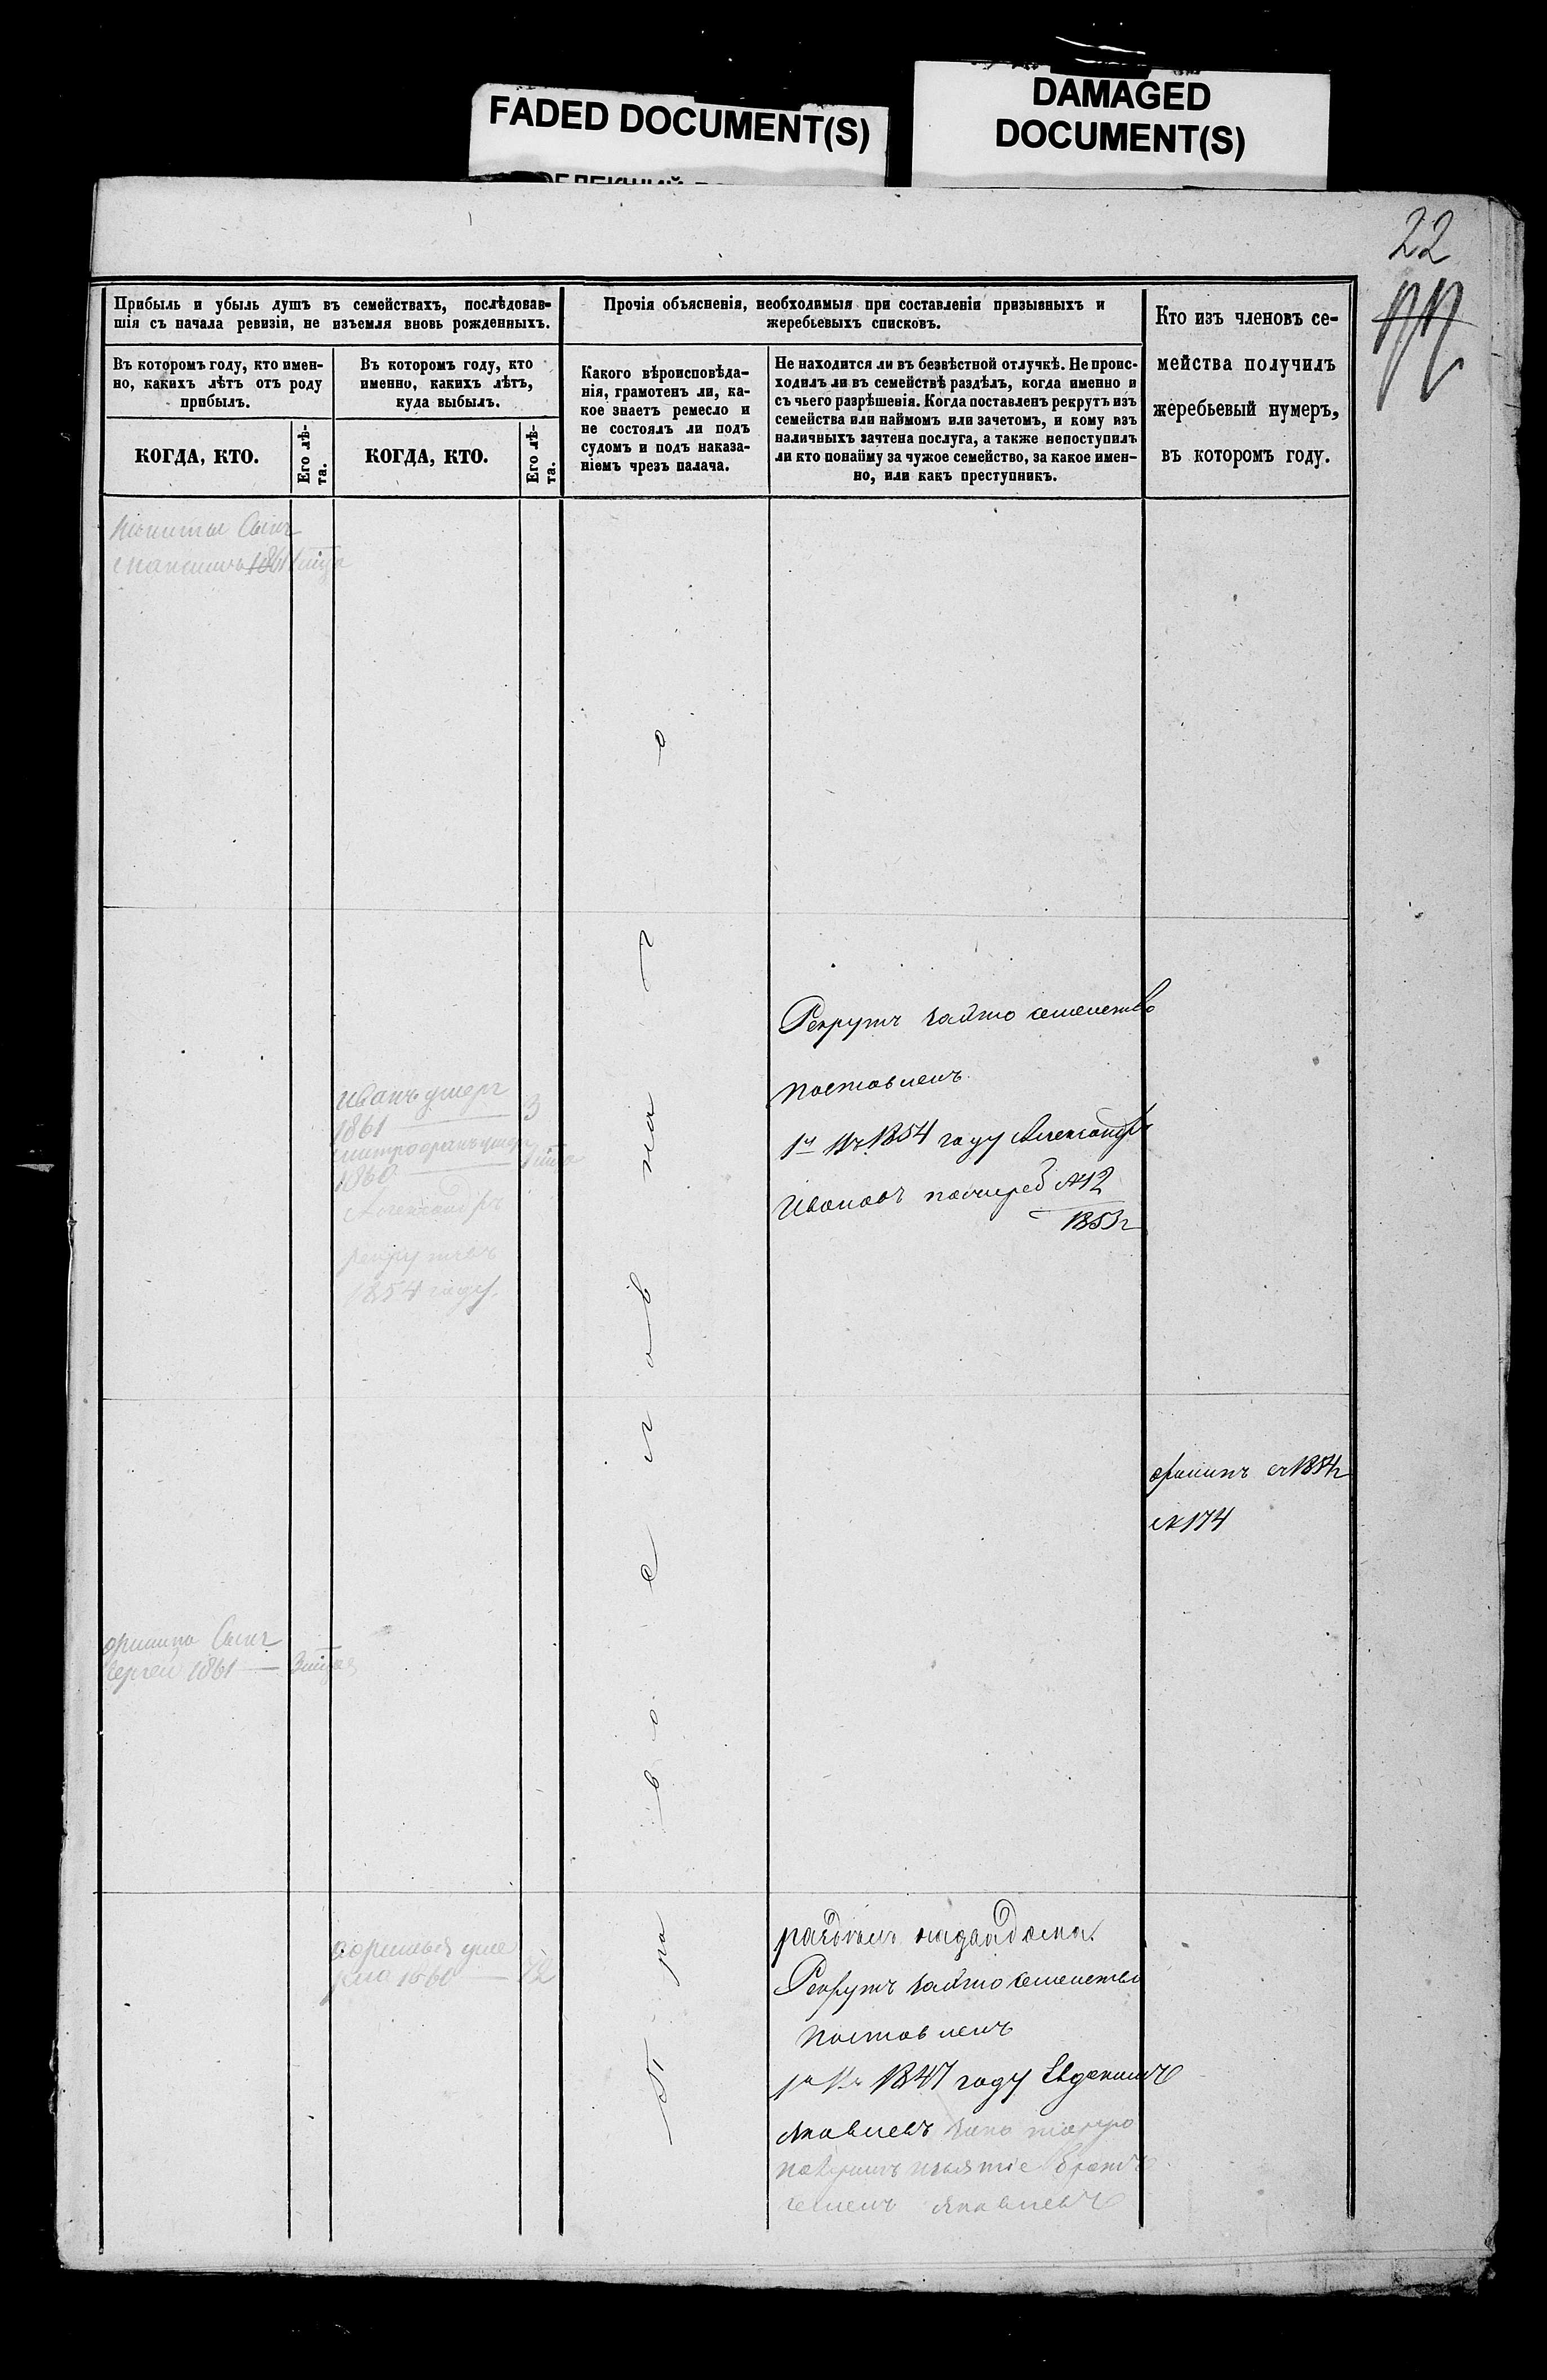 FADED DOCUMENT(S)
DAMAGED
DOCUMENT(S)
22
Прибыль и убыль душъ въ семействахъ, послѣдовав-
шія съ начала ревизіи, не изъемля вновь рожденныхъ.
Прочія объясненія, необходимыя при составленіи призывныхъ и
жеребьевыхъ списковъ.
Кто изъ членовъ се-
мейства получилъ
жеребьевый нумеръ,
въ которомъ году.
Въ которомъ году, кто имен-
но, какихъ лѣтъ отъ роду
прибылъ.
Въ которомъ году, кто
именно, какихъ лѣтъ,
куда выбылъ.
Какого вѣроисповѣда-
нія, грамотенъ ли, ка-
кое знаетъ ремесло и
не состоялъ ли подъ
судомъ и подъ наказа-
ніемъ чрезъ палача.
Не находится ли въ безвѣстной отлучкѣ. Не проис-
ходилъ ли въ семействѣ раздѣлъ, когда именно и
съ чьего разрѣшенія. Когда поставленъ рекрутъ изъ
семейства или наймомъ или зачетомъ, и кому изъ
наличныхъ зачтена послуга, а также непоступилъ
ли кто понайму за чужое семейство, за какое имен-
но, или какъ преступникъ.
КОГДА, КТО.
Его лѣ-
та.
КОГДА, КТО.
Его лѣ-
та.
Никиты Сынъ
Максимъ 1861
Православнаго
Рекрутъ
поставленъ
1й въ 1854 году Александръ
Ивановъ №12
1853г
Иванъ умеръ
1861 3
Митрофанъ умеръ
1860
Александръ
рекрутъ въ
1854 году
Филипъ 1854г
№174
Филипа Сынъ
Сергей 1861
1860
Рекрутъ
поставленъ
1й въ 1847 году Евдокимъ
Яковлевъ
братъ
Семенъ Яковлевъ